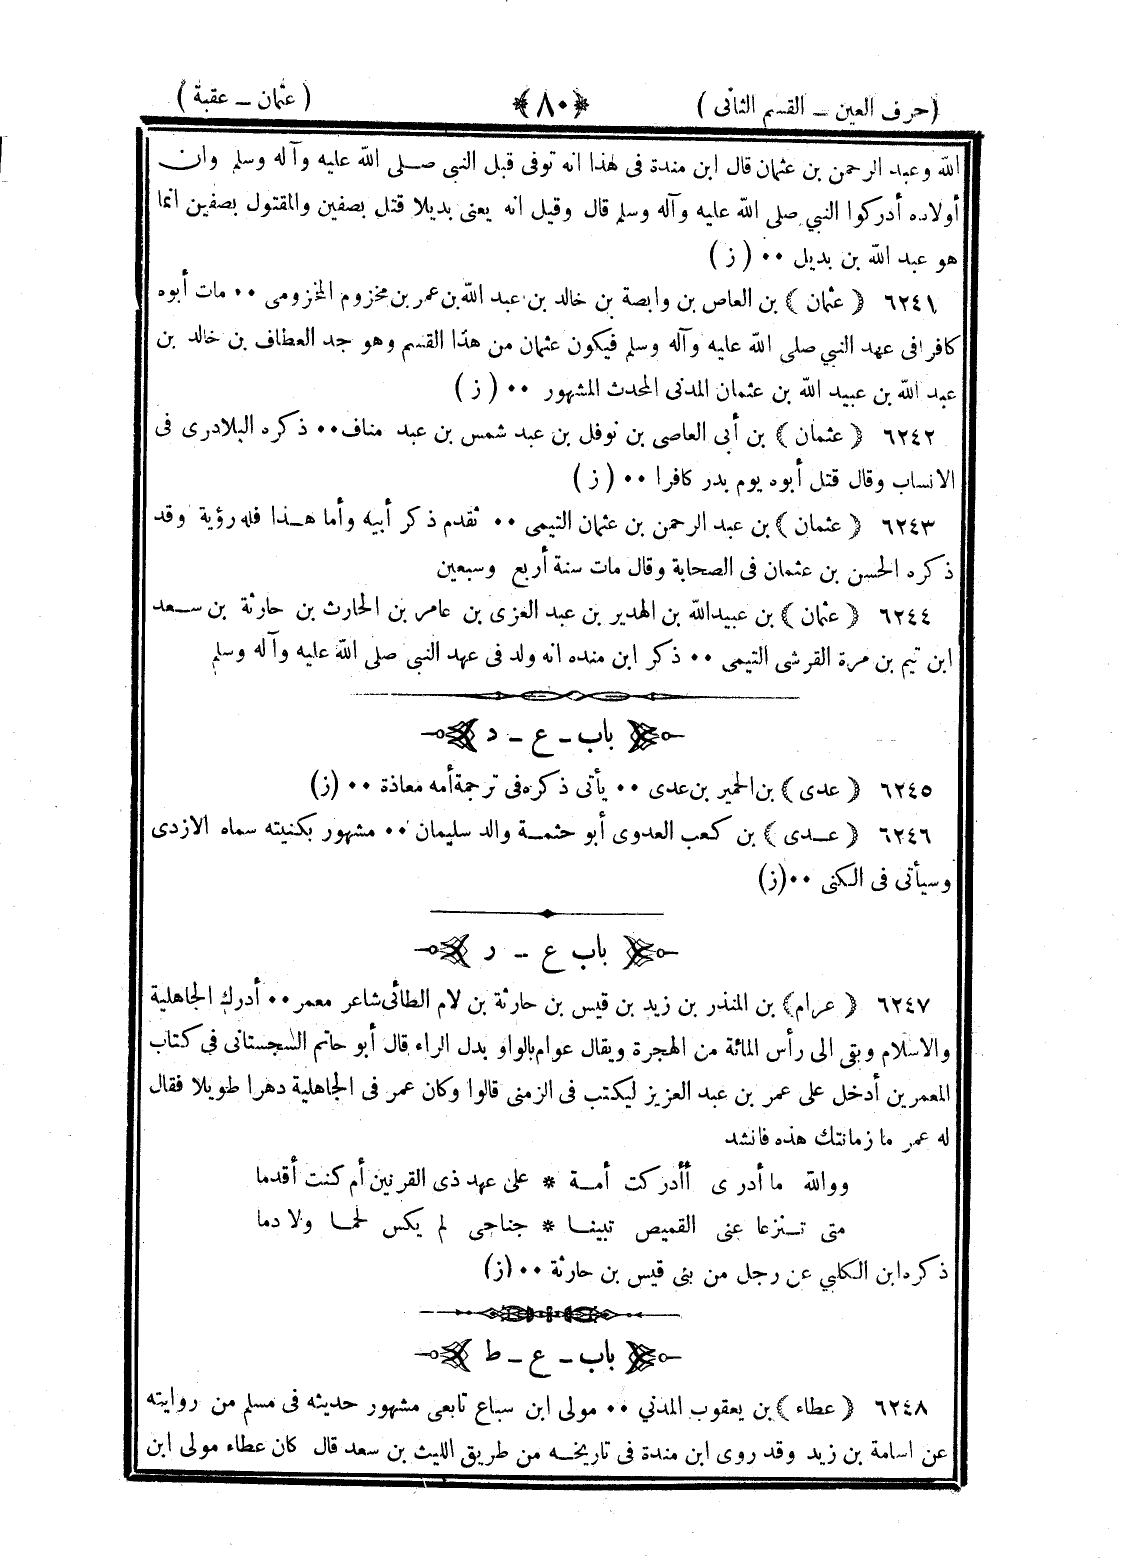 (حرف العين ــ القسم الثانى) ﴿٨٠﴾ (عثمان ــ عقبة)
الله وعبد الرحمن بن عثمان قال ابن مندة فى هذا انه توفى قبل النبى صلى الله عليه وآله وسلم وان
أولاده أدركوا النبي صلى الله عليه وآله وسلم قال وقيل انه يعنى بديلا قتل بصفين والمقتول بصفين انما
هو عبد الله بن بديل ٠٠ (ز)
٦٢٤١ ﴿عثمان﴾ بن العاص بن وابصة بن خالد بن عبد الله بن عمر بن مخزوم المخزومى ٠٠ مات أبوه
كافرا فى عهد النبي صلى الله عليه وآله وسلم فيكون عثمان من هذا القسم وهو جد العطاف بن خالد بن
عبد الله بن عبيد الله بن عثمان المدنى المحدث المشهور ٠٠ (ز)
٦٢٤٢ ﴿عثمان﴾ بن أبى العاصى بن نوفل بن عبد شمس بن عبد مناف ٠٠ ذكره البلادرى فى
الانساب وقال قتل أبوه يوم بدر كافرا ٠٠ (ز)
٦٢٤٣ ﴿عثمان﴾ بن عبد الرحمن بن عثمان التيمى ٠٠ تقدم ذكر أبيه وأما هذا فله رؤية وقد
ذكره الحسن بن عثمان فى الصحابة وقال مات سنة أربع وسبعين
٦٢٤٤ ﴿عثمان﴾ بن عبيدالله بن الهدير بن عبد العزى بن عامر بن الحارث بن حارثة بن سعد
ابن تيم بن مرة القرشى التيمى ٠٠ ذكر ابن منده انه ولد فى عهد النبي صلى الله عليه وآله وسلم
باب ـ ع ـ د
٦٢٤٥ ﴿عدى﴾ بن الحمير بن عدى ٠٠ يأتى ذكره فى ترجمة أمه معاذة ٠٠ (ز)
٦٢٤٦ ﴿عدى﴾ بن كعب العدوى أبو حثمة والد سليمان ٠٠ مشهور بكنيته سماه الازدى
وسيأتى فى الكنى ٠٠ (ز)
باب ع ـ ر
٦٢٤٧ ﴿عرام﴾ بن المنذر بن زيد بن قيس بن حارثة بن لام الطائى شاعر معمر ٠٠ أدرك الجاهلية
والاسلام وبقى الى رأس المائة من الهجرة ويقال عوام بالواو بدل الراء قال أبو حاتم السجستانى فى كتاب
المعمرين أدخل على عمر بن عبد العزيز ليكتب فى الزمنى قالوا وكان عمر فى الجاهلية دهرا طويلا فقال
له عمر ما زمانتك هذه فانشد
ووالله ما أدرى أأدركت أمة * على عهد ذى القرنين أم كنت أقدما
متى تنزعا عنى القميص تبينا * جناجى لم يكس لحما ولا دما
ذكره ابن الكلبي عن رجل من بنى قيس بن حارثة ٠٠ (ز)
باب ـ ع ـ ط
٦٢٤٨ ﴿عطاء﴾ بن يعقوب المدني ٠٠ مولى ابن سباع تابعى مشهور حديثه فى مسلم من روايته
عن اسامة بن زيد وقد روى ابن مندة فى تاريخه من طريق الليث بن سعد قال كان عطاء مولى ابن